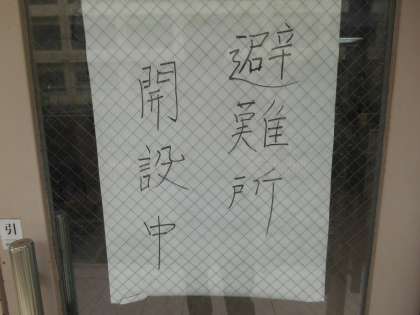 避難所
開設中
引